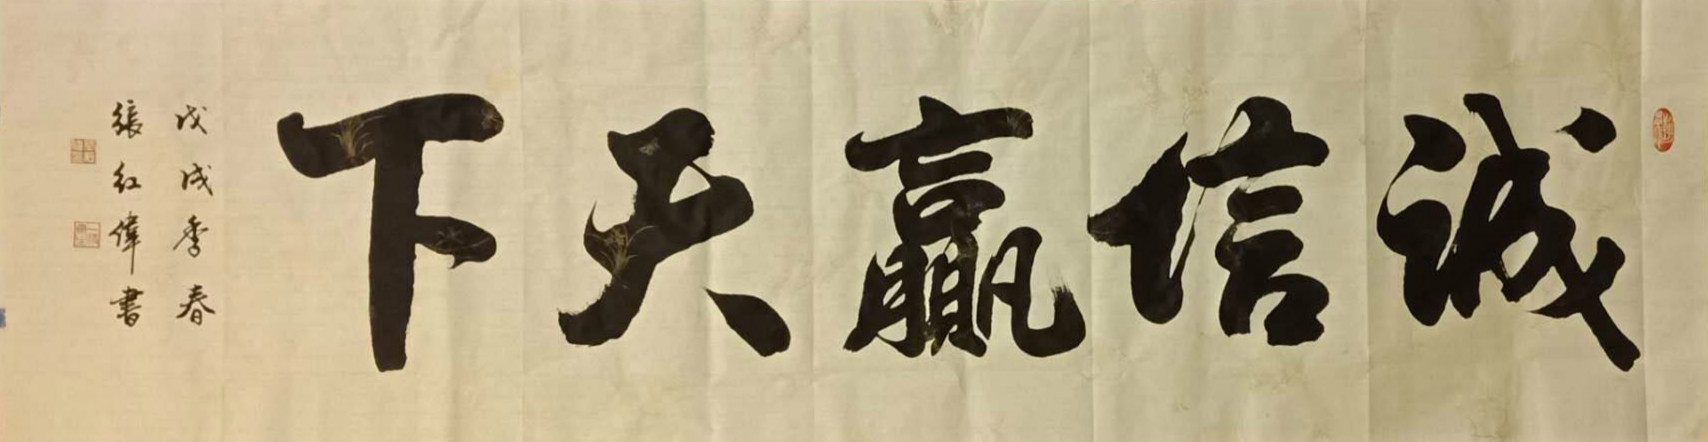 誠信贏天下
戊戌季春
張紅偉書